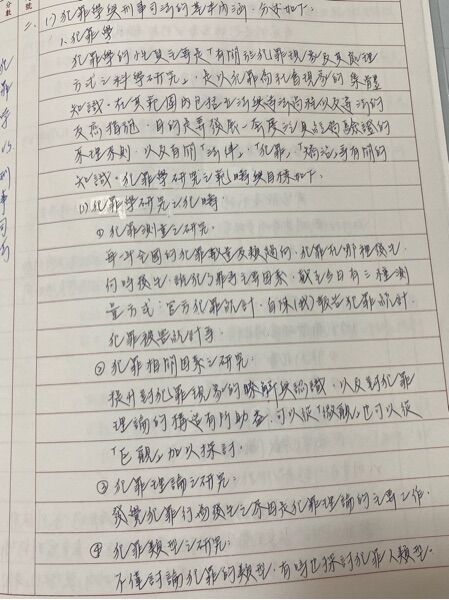 分數
號
二、(一)犯罪學與刑事司法的基本內涵,分述如下:
1.犯罪學
犯罪學的性質主要是「有關於犯罪現象及其處理
方式之科學研究」,是以犯罪為社會現象的集體
知識。在其範圍內包括立法與違法過程以及違法的
反應措施,目的是要發展一套廣泛且經過驗證的
原理原則,以及有關「法律」、「犯罪」、「矯治」等有關的
知識。犯罪學研究之範疇與目標如下:
(1)犯罪學研究之範疇
①犯罪測量之研究:
每一年全國的犯罪數量及類趨向,犯罪在哪裡發生、
何時發生、誰犯了罪等主要因素,截至今日有三種測
量方式:官方犯罪統計、自陳(我)報告犯罪統計、
犯罪被害統計等。
②犯罪相關因素之研究:
提升對犯罪現象的瞭解與認識,以及對犯罪
理論的構造有所助益,可以從「微觀」也可以從
「巨觀」加以探討。
③犯罪理論之研究:
發覺犯罪行為發生之原因是犯罪理論的主要工作。
④犯罪類型之研究:
不僅討論犯罪的類型,有時也探討犯罪人類型。
犯罪學與刑事司